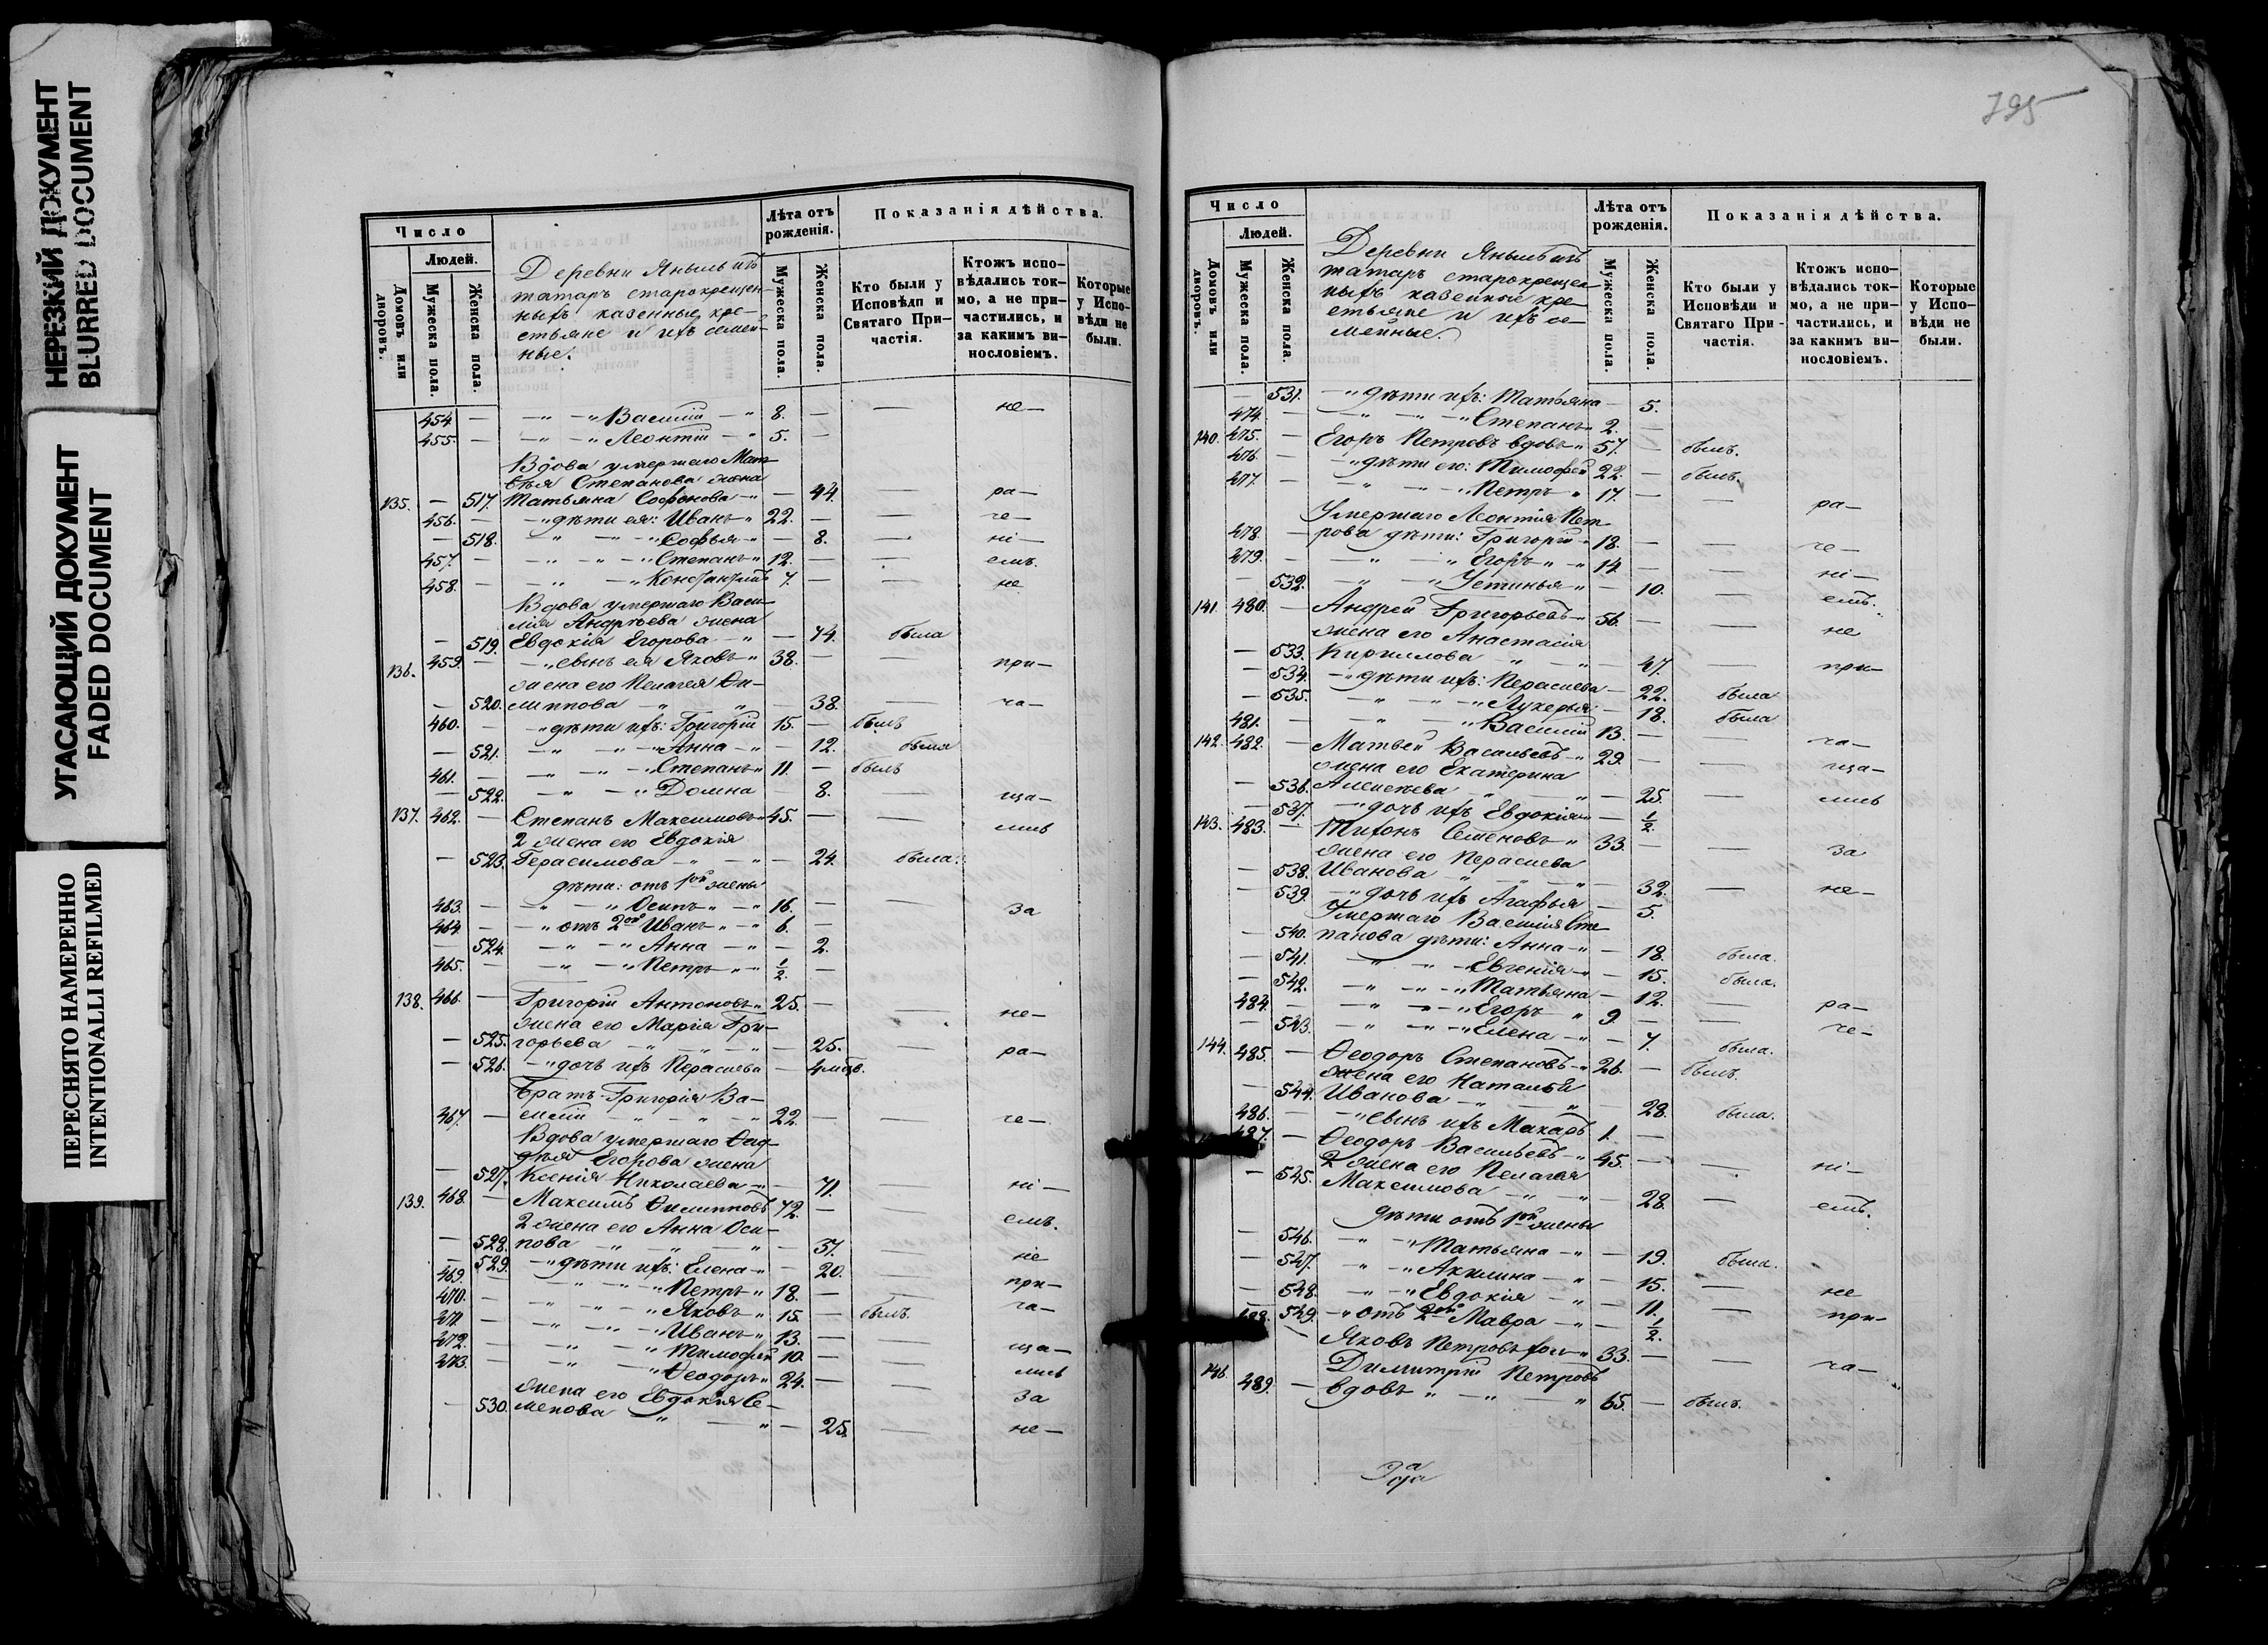 НЕРЕЗКИЙ ДОКУМЕНТ
BLURRED DOCUMENT
УГАСАЮЩИЙ ДОКУМЕНТ
FADED DOCUMENT
ПЕРЕСНЯТО НАМЕРЕННО
INTENTIONALLI REFILMED
Число
Людей.
Домовъ или дворовъ.
Мужеска пола.
Женска пола.
Деревни Яныль изъ
татаръ старокрещен-
ныхъ казенные кре-
стьяне и ихъ семей-
ные.
Лѣта отъ рожденія.
Мужеска пола.
Женска пола.
Показанія дѣйства.
Кто были у Исповѣди и Святаго При-частія.
Ктожъ испо-вѣдались ток-мо, а не при-частились, и за какимъ ви-нословіемъ.
Которые у Испо-вѣди не были.
454. — — " — " Василій — " 8. — — не —
455. — — " — " Леонтій — " 5. —
Вдова умершаго Мат-
вѣя Степанова жена
135. — 517. Татьяна Софонова — " — 44. — ра —
456. — — " дѣти ея: Иванъ — " 22. — — че —
— 518. " — " — " Софья — " — 8. — ні —
457. — — " — " — " Степанъ — " 12. — — емъ.
458. — — " — " Константинъ 7. — — не
Вдова умершаго Васи-
лія Андрѣева жена
— 519. Евдокія Егорова — " — 74. была
136. 459. — — " сынъ ея Яковъ — " 38. — — при —
жена его Пелагея Фи-
— 520. липпова — " " — 38. — ча —
460. — — " дѣти ихъ: Григорій 15. — былъ
— 521. — " — " — " Анна — " — 12. была
461. — — " — " — " Степанъ " 11. — былъ
— 522. — " — " Домна — 8. — ща —
137. 462. — Степанъ Максимовъ " 45. — — лись
2 жена его Евдокія
— 523. Герасимова — " — " — 24. была.
дѣти: отъ 1ой жены
463. — " — " Осипъ — " — " 16. — — за
464. — — " отъ 2ой Иванъ — " — " 6. —
— 524. — " — " Анна — " — 2.
465. — — " — " Петръ — " — " 1/2. —
138. 466. — Григорій Антоновъ " 25. — — не —
жена его Марія Гри-
— 525. горьева — " — " — " — 25. — ра —
— 526. — " дочь ихъ Параскева — 4 мѣс.
Братъ Григорія Ва-
467. — силій " " " 22. — — че —
Вдова умершаго Фад-
дѣя Егорова жена
— 527. Ксенія Николаева — " — 71. — ні —
139. 468. — Максимъ Филипповъ 72. — — емъ.
2 жена его Анна Оси-
— 528. пова — " — " — " — 37. — не
— 529. — " дѣти ихъ: Елена — " — 20. — при —
469. — " — " — " Петръ — " 18. — — ча —
470. — — " — " — " Яковъ — " 15. — былъ.
471. — — " — " — " Иванъ — " 13. — — ща —
472. — — " — " Тимофей 10. — — лись
473. — — " — " Ѳеодоръ " 24. — — за
жена его Евдокія Се-
— 530. менова " — " — 25. — не —
795
Число
Людей.
Домовъ или дворовъ.
Мужеска пола.
Женска пола.
Деревни Яныль изъ
татаръ старокрещен
ныхъ казенные кре-
стьяне и ихъ се-
мейные.
Лѣта отъ рожденія.
Мужеска пола.
Женска пола.
Показанія дѣйства.
Кто были у Исповѣди и Святаго При-частія.
Ктожъ испо-вѣдались ток-мо, а не при-частились, и за какимъ ви-нословіемъ.
Которые у Испо-вѣди не были.
— 531. — " дѣти ихъ: Татьяна — 5.
474. — — " — " — " Степанъ " 2. —
140. 475. — Егоръ Петровъ вдовъ " 57. — былъ.
476. — " дѣти его: Тимофей 22. — былъ.
477. — — " — " — " Петръ " 17. — — ра —
Умершаго Леонтія Пет-
478. — рова дѣти: Григорій " 18. — — че —
479. — — " — " Егоръ " — " 14. — — ні —
— 532. — " — " Устинья " — 10. — емъ.
141. 480. — Андрей Григорьевъ " 56. — — не
жена его Анастасія
— 533. Кириллова " — " — 47. — при —
— 534. — " дѣти ихъ: Параскева — 22. была
— 535. — " — " — " Лукерья — 18. была
481. — — " — " Василій 13. — — ча —
142. 482. — Матвей Васильевъ " 29. — — ща —
жена его Екатерина
— 536. Алексѣева " — " — 25. — лись
— 537. — " дочь ихъ Евдокія " — 1/2.
143. 483. — Тихонъ Семеновъ — " 33. — — за
жена его Параскева
— 538. Иванова " — " — " — 32. — не —
— 539. — " дочь ихъ Агафья — 5.
Умершаго Василія Сте
— 540. панова дѣти: Анна — " — 18. была.
— 541. — " — " Евгенія — " — 15. была.
— 542. — " — " — " Татьяна — 12. — ра —
484. — — " — " — " Егоръ " 9. — — че —
— 543. — " — " — " Елена — " — 7. была.
144. 485. — Ѳеодоръ Степановъ " 26. — былъ.
жена его Наталья
— 544. Иванова — " — " — 28. была.
486. — — " сынъ ихъ Макаръ 1. —
487. — Ѳеодоръ Васильевъ " 45. — — ні —
2 жена его Пелагея
— 545. Максимова — " — " — 28. — емъ.
дѣти отъ 1ой жены
— 546. — " — " Татьяна — " — 19. была.
— 547. — " — " Акилина — " — 15. — не
— 548. — " — " Евдокія — " — 11. — при —
— 549. — " отъ 2ой Мавра — " — 1/2.
488. — Яковъ Петровъ " 33. — — ча —
Димитрій Петровъ
146. 489. — вдовъ " — " — " 65. — былъ.